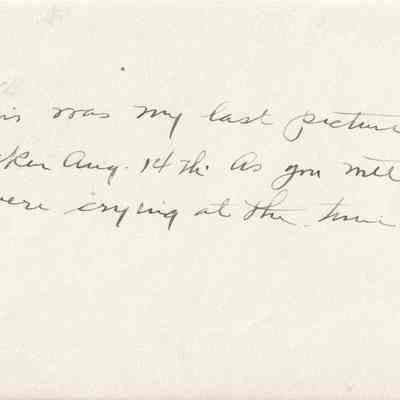 is was my last picture
ken Aug. 14th. As you
were crying at the time